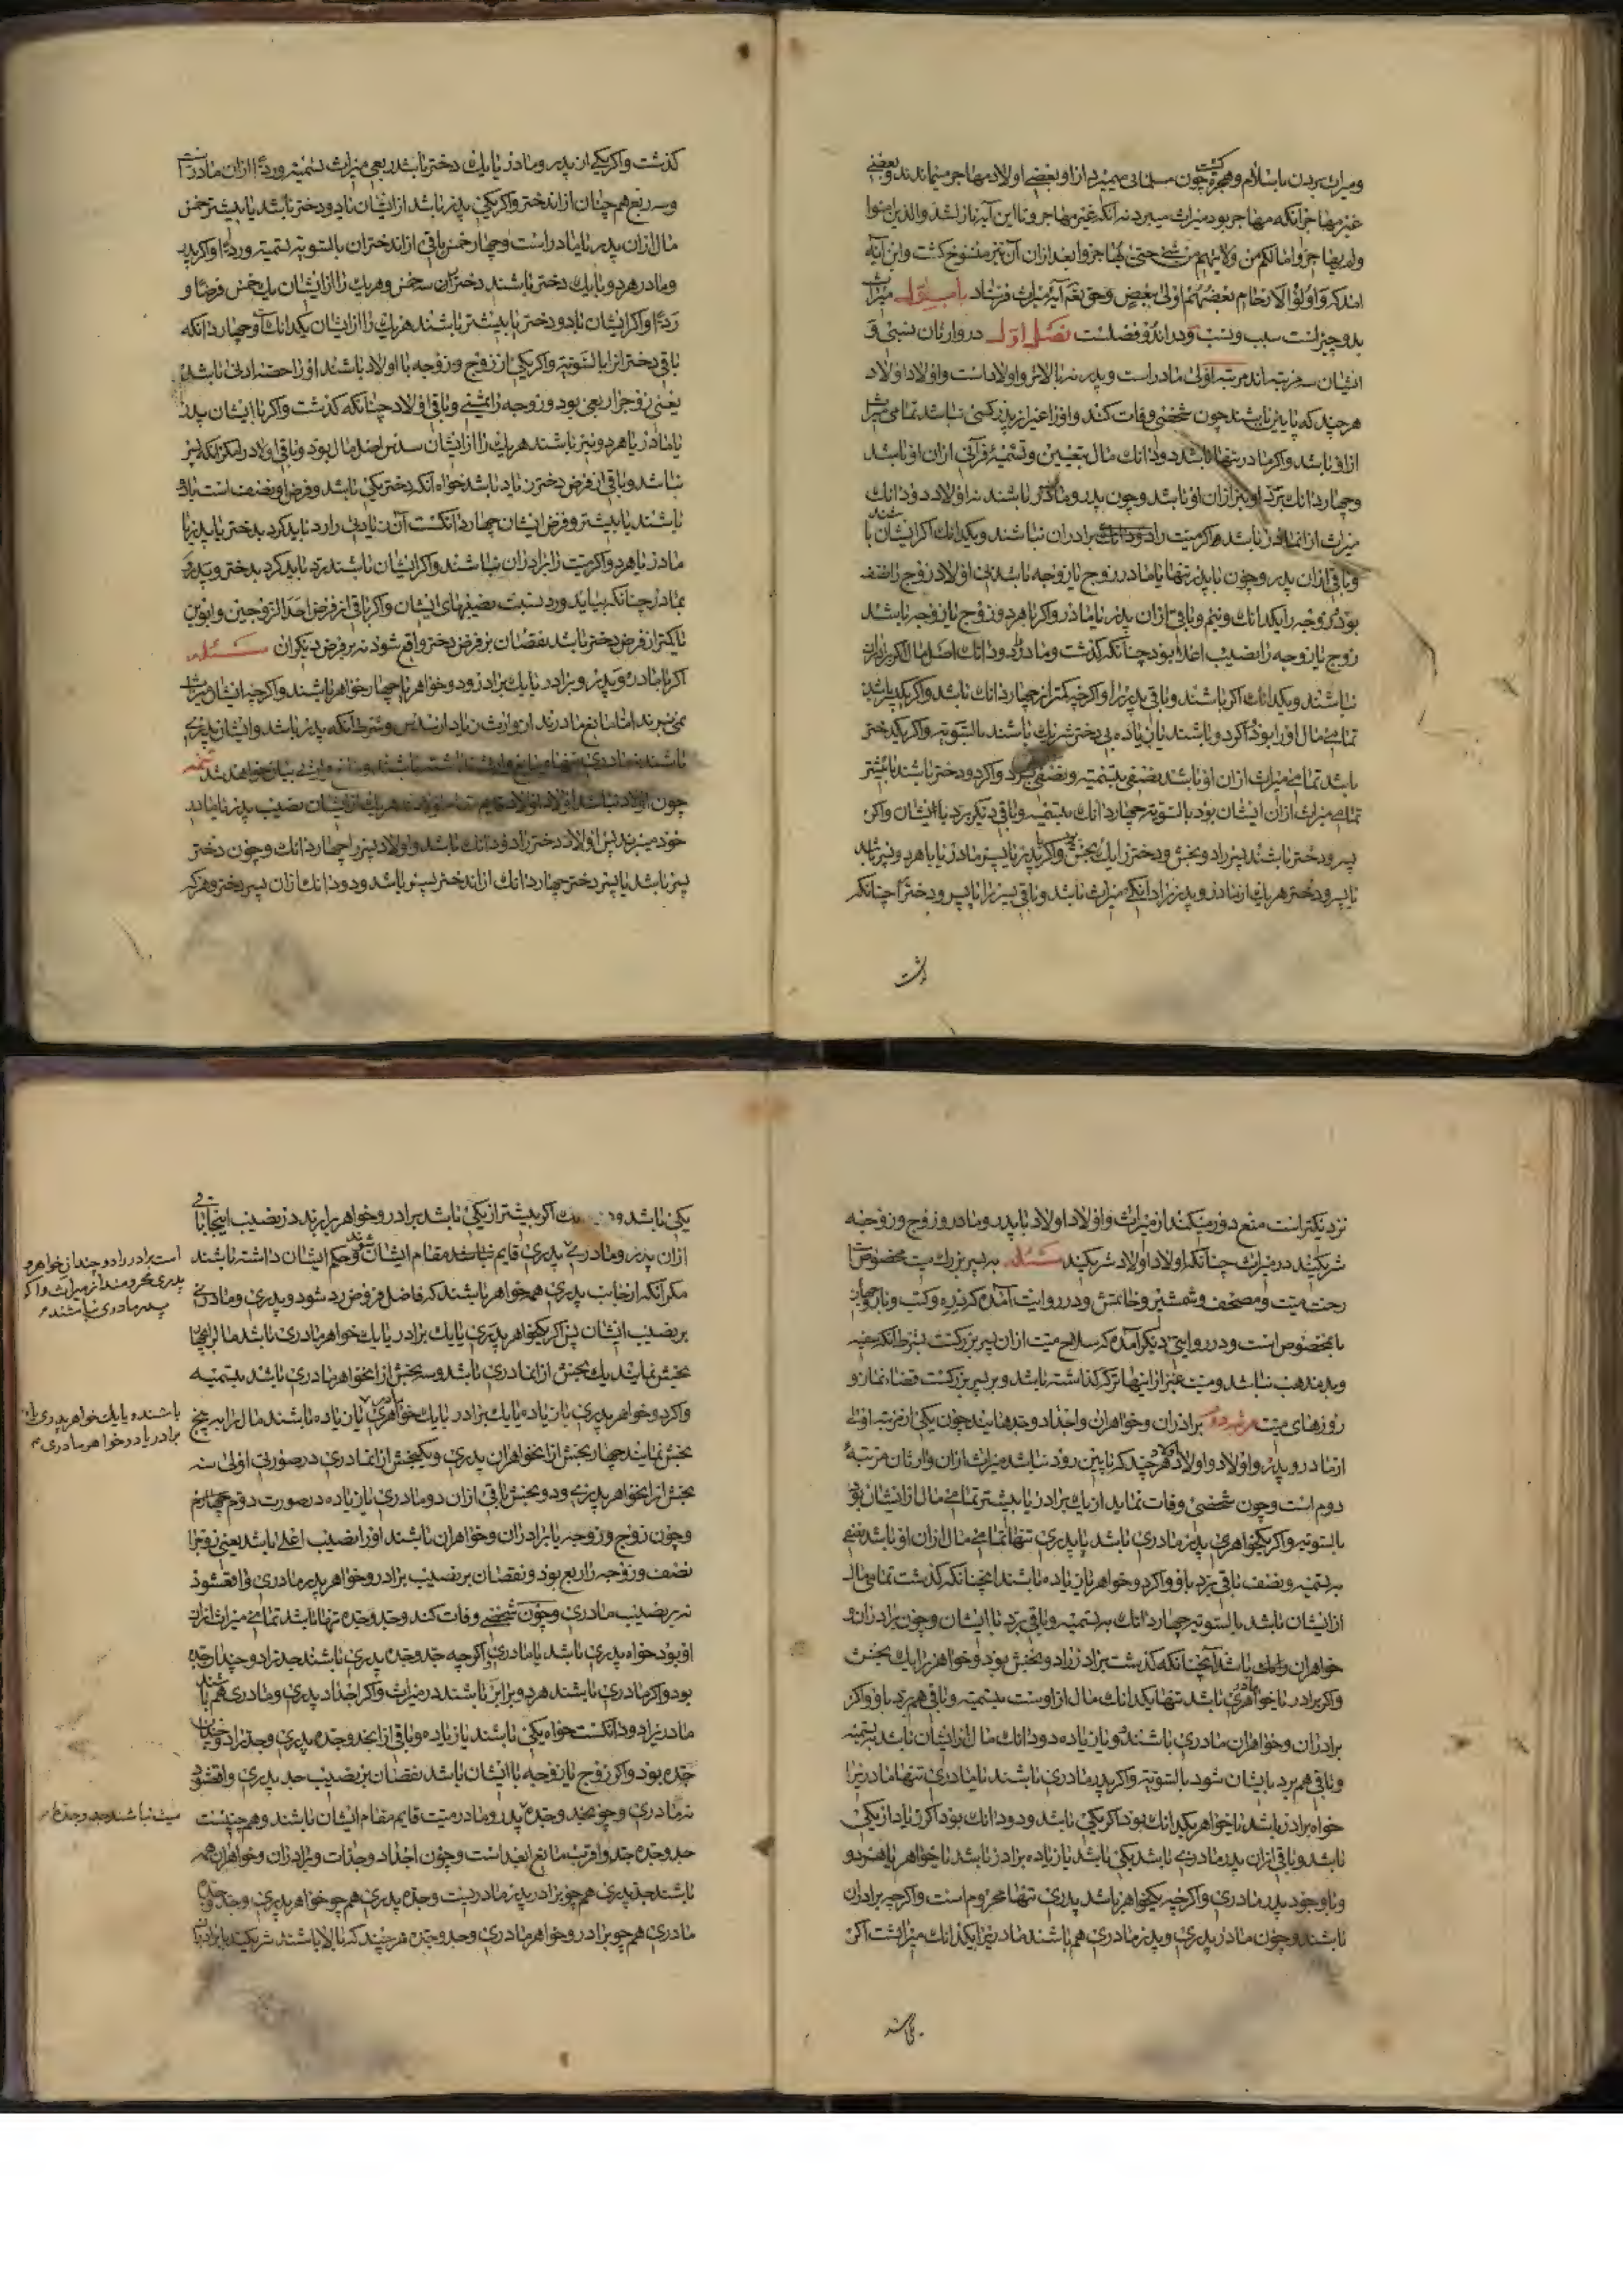 و میراث بردن باسلام و هجرة کشت چون مسلمانی میمرد از او بعضی اولاد مهاجر میماندند و بعضی
غیر مهاجر آنکه مهاجر بود میراث میبرد نه آنکه غیر مهاجر و تا این آیه نازل شد والذین امنوا
ولم یهاجروا مالکم من ولایتهم من شئ حتی یهاجروا بعد ازان آن نیز منسوخ کشت و این آیه
امد که واولوا الارحام بعضهم اولی ببعض و حق تعه آیه میراث فرستاد باب اول میراث
بدو چیز است سبب و نسب و در اندو فصلست فصل اول در وارثان نسبی و
ایشان سه مرتبه اند مرتبه اولی مادر است و پدر نه بالاتر و اولاد است و اولاد اولاد
هر چند که پایین باشند چون شخصی وفات کند و او را غیر از پدر کسی نباشد تمامی میراث
از او باشد و اکر مادر تنها باشد دو دانك مال بتعیین و تسمیهٔ قرآنی ازان او باشد
و چهار دانك برد او نیز ازان او باشد و چون پدر و مادر باشند نه اولاد دو دانك
میراث از مادر باشد اکر میت را برادران نباشند و یکدانك اکر ایشان باشند
و باقی ازان پدر و چون با پدر تنها یا مادر زوج یا زوجه باشد اولاد زوج را نصف
بود و زوجه را یکدانك و نیم و باقی ازان پدر یا مادر و اکر با هر دو زوج یا زوجه باشند
زوج یا زوجه را نصیب اعلا بود چنانکه کذشت و مادر را دو دانك اصل مال اکر برادران
نباشند و یکدانك اکر باشند و باقی پدر را و اکر چه کمتر از چهار دانك باشد و اکر یك پسر باشد
تمامی مال او را بود و اکر دو باشند یا زیاده بی دختر شریك باشند بالسویه و اکر یکدختر
باشد تمامی میراث ازان او باشد نصفی بتسمیه و نصفی برد و اکر دو دختر باشند یا بیشتر
تمامی میراث ازان ایشان بود بالسویه چهار دانك بتسمیه و باقی دیکر برد با ایشان و اکر
پسر و دختر باشند پسر را دو بخش و دختر را یك بخش و اکر پدر یا مادر یا با هر دو نیز باشد
یا پسر و دختر هر یك از مادر و پدر را دانکی میراث باشد و باقی پسر را یا پسر و دختر را چنانکه
کذشت
کذشت و اکر یکی از پدر و مادر با یك دختر باشد ربعی میراث بتسمیه و ردا ازان مادر است
و سه ربع هم چنان ازان دختر و اکر یکی پدر باشد از ایشان با دو دختر باشد یا بیشتر خمس
مال ازان پدر یا مادر است و چهار خمس باقی ازان دختران بالسویه بتسمیه و ردا و اکر پدر
و مادر هر دو با یك دختر باشند دختر را سه خمس و هر یك را از ایشان یك خمس فرضا و
ردا و اکر ایشان با دو دختر یا بیشتر باشند هر یك را از ایشان یکدانك و چهار دانکه
باقی دختر انرا بالسویه و اکر یکی از زوج و زوجه با اولاد باشند او را حصه ادنی باشد
یعنی زوج را ربعی بود و زوجه را ثمنی و باقی اولاد چنانکه کذشت و اکر با ایشان پدر
یا مادر یا هر دو نیز باشند هر یك را از ایشان سدس اصل مال بود و باقی اولاد را مکر آنکه پسر
نباشد و باقی از فرض دختر زیاد باشد خواه آنکه دختر یکی باشد و فرض او نصف است یا دو
باشند یا بیشتر و فرض ایشان چهار دانکست آن زیادتی را رد باید کرد بدختر یا پدر یا
مادر یا هر دو اکر میت را برادران نباشند و اکر ایشان باشند رد باید کرد بدختر و پدر و
بمادر چنانکه بیاید و رد بنسبت نصیبهای ایشان و اکر باقی از فرض احد الزوجین و ابوین
یا کمتر از فرض دختر باشد نقصان بر فرض دختر واقع شود نه بر فرض دیکران مسئله
اکر با مادر و پدر دو برادر یا یك برادر و دو خواهر یا چهار خواهر باشند و اکر چه ایشان میراث
نمی برند اما مانع مادرند از وارث زیاد از سدس بشرط آنکه پدر باشد و ایشان پدری
باشند نه مادری تنها تتمه
چون اولاد نباشند اولاد اولاد قایم مقام اولادند هر یك از ایشان نصیب پدر یا مادر
خود میبرند پس اولاد دختر را دو دانك باشد و اولاد پسر را چهار دانك و چون دختر
پسر باشد با پسر دختر چهار دانك ازان دختر پسر باشد و دو دانك ازان پسر دختر و هر که
نزدیکتر است منع دورتر میکند از میراث و اولاد اولاد با پدر و مادر و زوج و زوجه
شریکند در میراث چنانکه اولاد اولاد شریکند مسئله پسر بزرك میت مخصوص است
رخت میت و مصحف و شمشیر و خاتمش و در روایت آمده که زره و کتب
مخصوص است و در روایتی دیکر آمده که سلاح میت ازان پسر بزرکست بشرط آنکه سفیه
و بد مذهب نباشد و میت غیر از اینها ترکه کذاشته باشد و بر پسر بزرکست قضاء نماز و
روزهای میت مرتبه دوم برادران و خواهران و اجداد و جدهایند چون یکی از مرتبه اولی
از مادر و پدر و اولاد و اولاد اولاد هر چند که پایین رود نباشد میراث ازان وارثان مرتبهٔ
دوم است و چون شخصی وفات نماید از یك برادر یا بیشتر تمامی مال از ایشان بود
بالسویه و اکر یکخواهری پدر مادری باشد یا پدری تنها تمامی مال ازان او باشد نصفی
بتسمیه و نصف باقی برد باو و اکر دو خواهر یا زیاده باشند همچنانکه کذشت تمامی مال
از ایشان باشد بالسویه چهار دانك بتسمیه و باقی برد با ایشان و چون برادران و
خواهران باشد آنچنانکه کذشت برادر را دو بخش بود و خواهر را یك بخش
و اکر برادر یا خواهر مادری باشد تنها یکدانك مال از اوست بتسمیه و باقی هم برد باو و اکر
برادران و خواهران مادری باشند دو یا زیاده دو دانك مال از ایشان باشد بتسمیه
و باقی هم برد بایشان شود بالسویه و اکر پدر مادری باشند با مادری تنها مادری را
خواه برادر باشد یا خواهر یکدانك بود اکر یکی باشد و دو دانك بود اکر زیاد از یکی
باشد و باقی ازان پدر مادری باشد یکی باشد یا زیاده برادر باشد یا خواهر یا هر دو
و با وجود پدر مادری و اکر چه یکخواهر باشد پدری تنها محروم است و اکر چه برادران
باشند و چون مادر پدری و پدر مادری هم باشند مادری را یکدانك میراثست اکر
یکی باشد
یکی باشد و اکر بیشتر از یکی باشد برادر و خواهر برابرند در نصیب اینجا باقی
ازان پدر و مادری پدری قایم مقام ایشان شوند و حکم ایشان داشته باشند
مکر آنکه از جانب پدری همه خواهر باشند که فاضل فروض رد شود و پدری و مادری
بر نصیب ایشان پس اکر یکخواهر پدری با یك برادر یا یك خواهر مادری باشد مال را بچهار
بخش نمایند یك بخش ازان مادری باشد و سه بخش ازان خواهر مادری باشد بتسمیه
و اکر دو خواهر پدری یا زیاده با یك برادر یا یك خواهر مادری یا زیاده باشند مال را به پنج
بخش نمایند چهار بخش ازان خواهران پدری و یکبخش ازان مادری در صورتی اولی سه
بخش ازان خواهر پدری و دو بخش باقی ازان دو مادری یا زیاده در صورت دوم
و چون زوج و زوجه با برادران و خواهران باشند او را نصیب اعلی باشد یعنی زوج را
نصف و زوجه را ربع بود و نقصان بر نصیب برادر و خواهر پدر مادری واقع شود
نه بر نصیب مادری و چون شخصی وفات کند و جد و جده تنها باشد تمامی میراث ازان
او بود خواه پدری باشد یا مادری و اکر چه جد و جده پدری باشند جد را دو چندان جده
بود و اکر مادری باشند هر دو برابر باشند در میراث و اکر اجداد پدری و مادری هم باشند
مادری را دو دانکست خواه یکی باشند یا زیاده و باقی ازان جد و جده پدری و جد را دو چندان
جده بود و اکر زوج یا زوجه با ایشان باشد نقصان بر نصیب جد پدری واقع شود
نه مادری و چون جد و جده پدر و مادر میت قایم مقام ایشان باشند و همچنین است
جد و جده جد و اقرب مانع ابعد است و چون اجداد و جدات و برادران و خواهران همه
باشند جد پدری هم چو برادر پدر مادریست و جده پدری هم چو خواهر پدری و جد و جده
مادری هم چو برادر و خواهر مادری و جد و جده هر چند که بالا باشند شریکند با برادران
است برادر را دو چندان خواهر و
پدری محرومند از میراث و اکر
پدر مادری نباشند
باشند و یا یك خواهر پدری با دو
برادر یا دو خواهر مادری
میت نباشند جد و جده